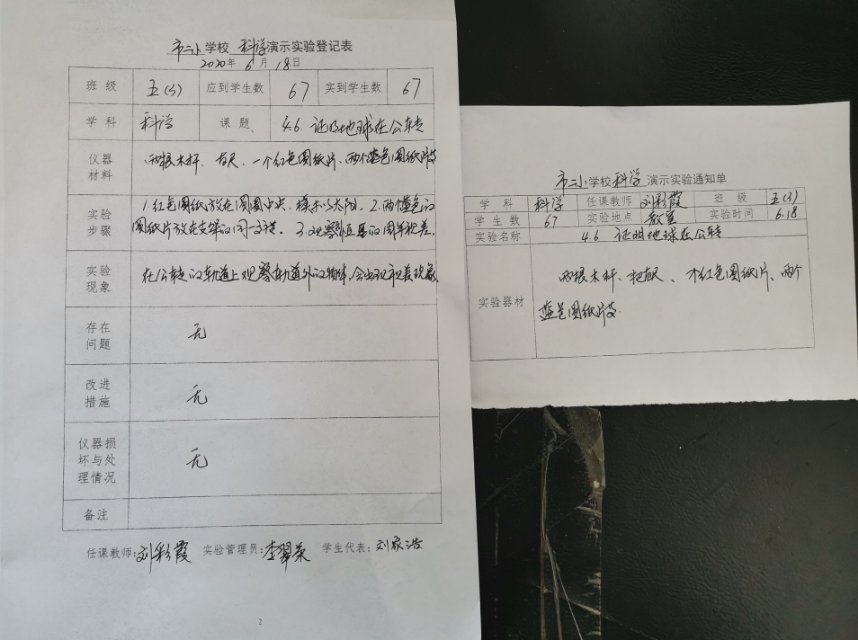 市二小学校 科学演示实验登记表
2020年 6月 18日
班级 五(3) 应到学生数 67 实到学生数 67
学科 科学 课题、 4.6 证明地球在公转
仪器
材料
两根木杆、 一个红色圆纸片、两个蓝色圆纸片
实验
步骤
1.红色圆纸片放在圆圈中央,模拟太阳。2.两个蓝色的
圆纸片放在 的同一 。3.观察恒星的周年视差。
实验
现象
在公转的轨道上观察轨道外的物体,会出现视差现象
存在
问题
无
改进
措施
无
仪器损
坏与处
理情况
无
备注
任课教师:刘彩霞 实验管理员:李翠英 学生代表:刘家浩
2
市二小学校科学演示实验通知单
学科 科学 任课教师 刘彩霞 班级 五(3)
学生数 67 实验地点 教室 实验时间 6.18
实验名称 4.6 证明地球在公转
实验器材
两根木杆、 、 个红色圆纸片、两个
蓝色圆纸片